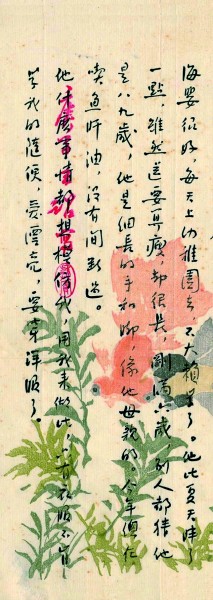 海嬰很好,每天上幼稚園去,不大賴學了。他比夏天胖了
一點,雖然還要算瘦,却很長,剛滿六歲,別人都猜他
是八九歲,他是細長的手和脚,像他母親的。今年總在
喫魚肝油,沒有間斷過。
他什麼事情都想模仿我,用我來做比,只有衣服不肯
學我的隨便,愛漂亮,要穿洋服了。